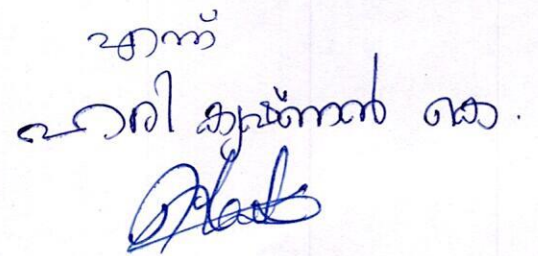 എന്ന്
ഹരി കൃഷ്ണൻ കെ.